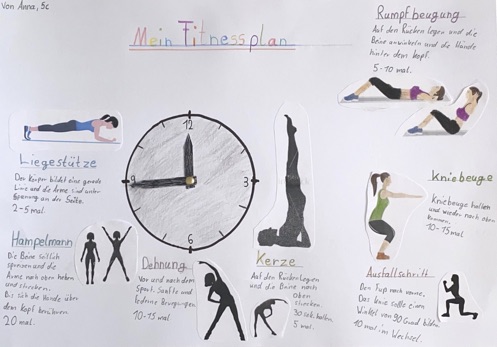 Von Anna, 5c
Mein Fitnessplan
Rumpfbeugung
Auf den Rücken legen und die
Beine anwinkeln und die Hände
hinter dem Kopf.
5-10 mal.
Liegestütze
Der Körper bildet eine gerade
Linie und die Arme sind unter
Spannung an der Seite.
2-5mal.
12
3
6
9
Kniebeuge
Kniebeuge halten
und wieder nach oben
kommen.
10-15mal
Hampelmann
Die Beine seitlich
springen und die
Arme nach oben heben
und strecken.
Bis sich die Hände über
dem Kopf berühren
20mal.
Dehnung
Vor und nach dem
Sport. Sanfte und
Bewegungen
10-15mal
Kerze
Auf den Rücken legen
und die Beine nach
oben
strecken.
30 sek. halten.
5 mal.
Ausfallschritt
Den Fuß nach vorne,
Das Knie sollte einen
Winkel von 90 Grad bilden
10 mal im Wechsel.